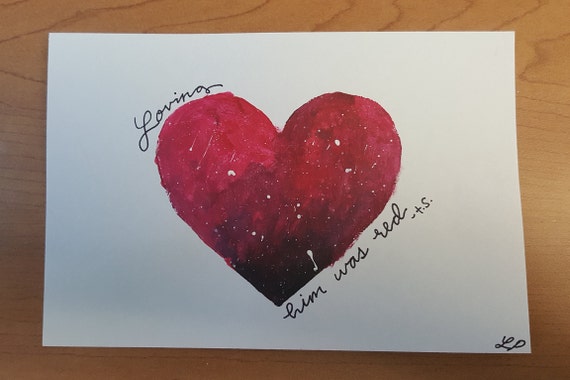 Loving
him was red -t.s.